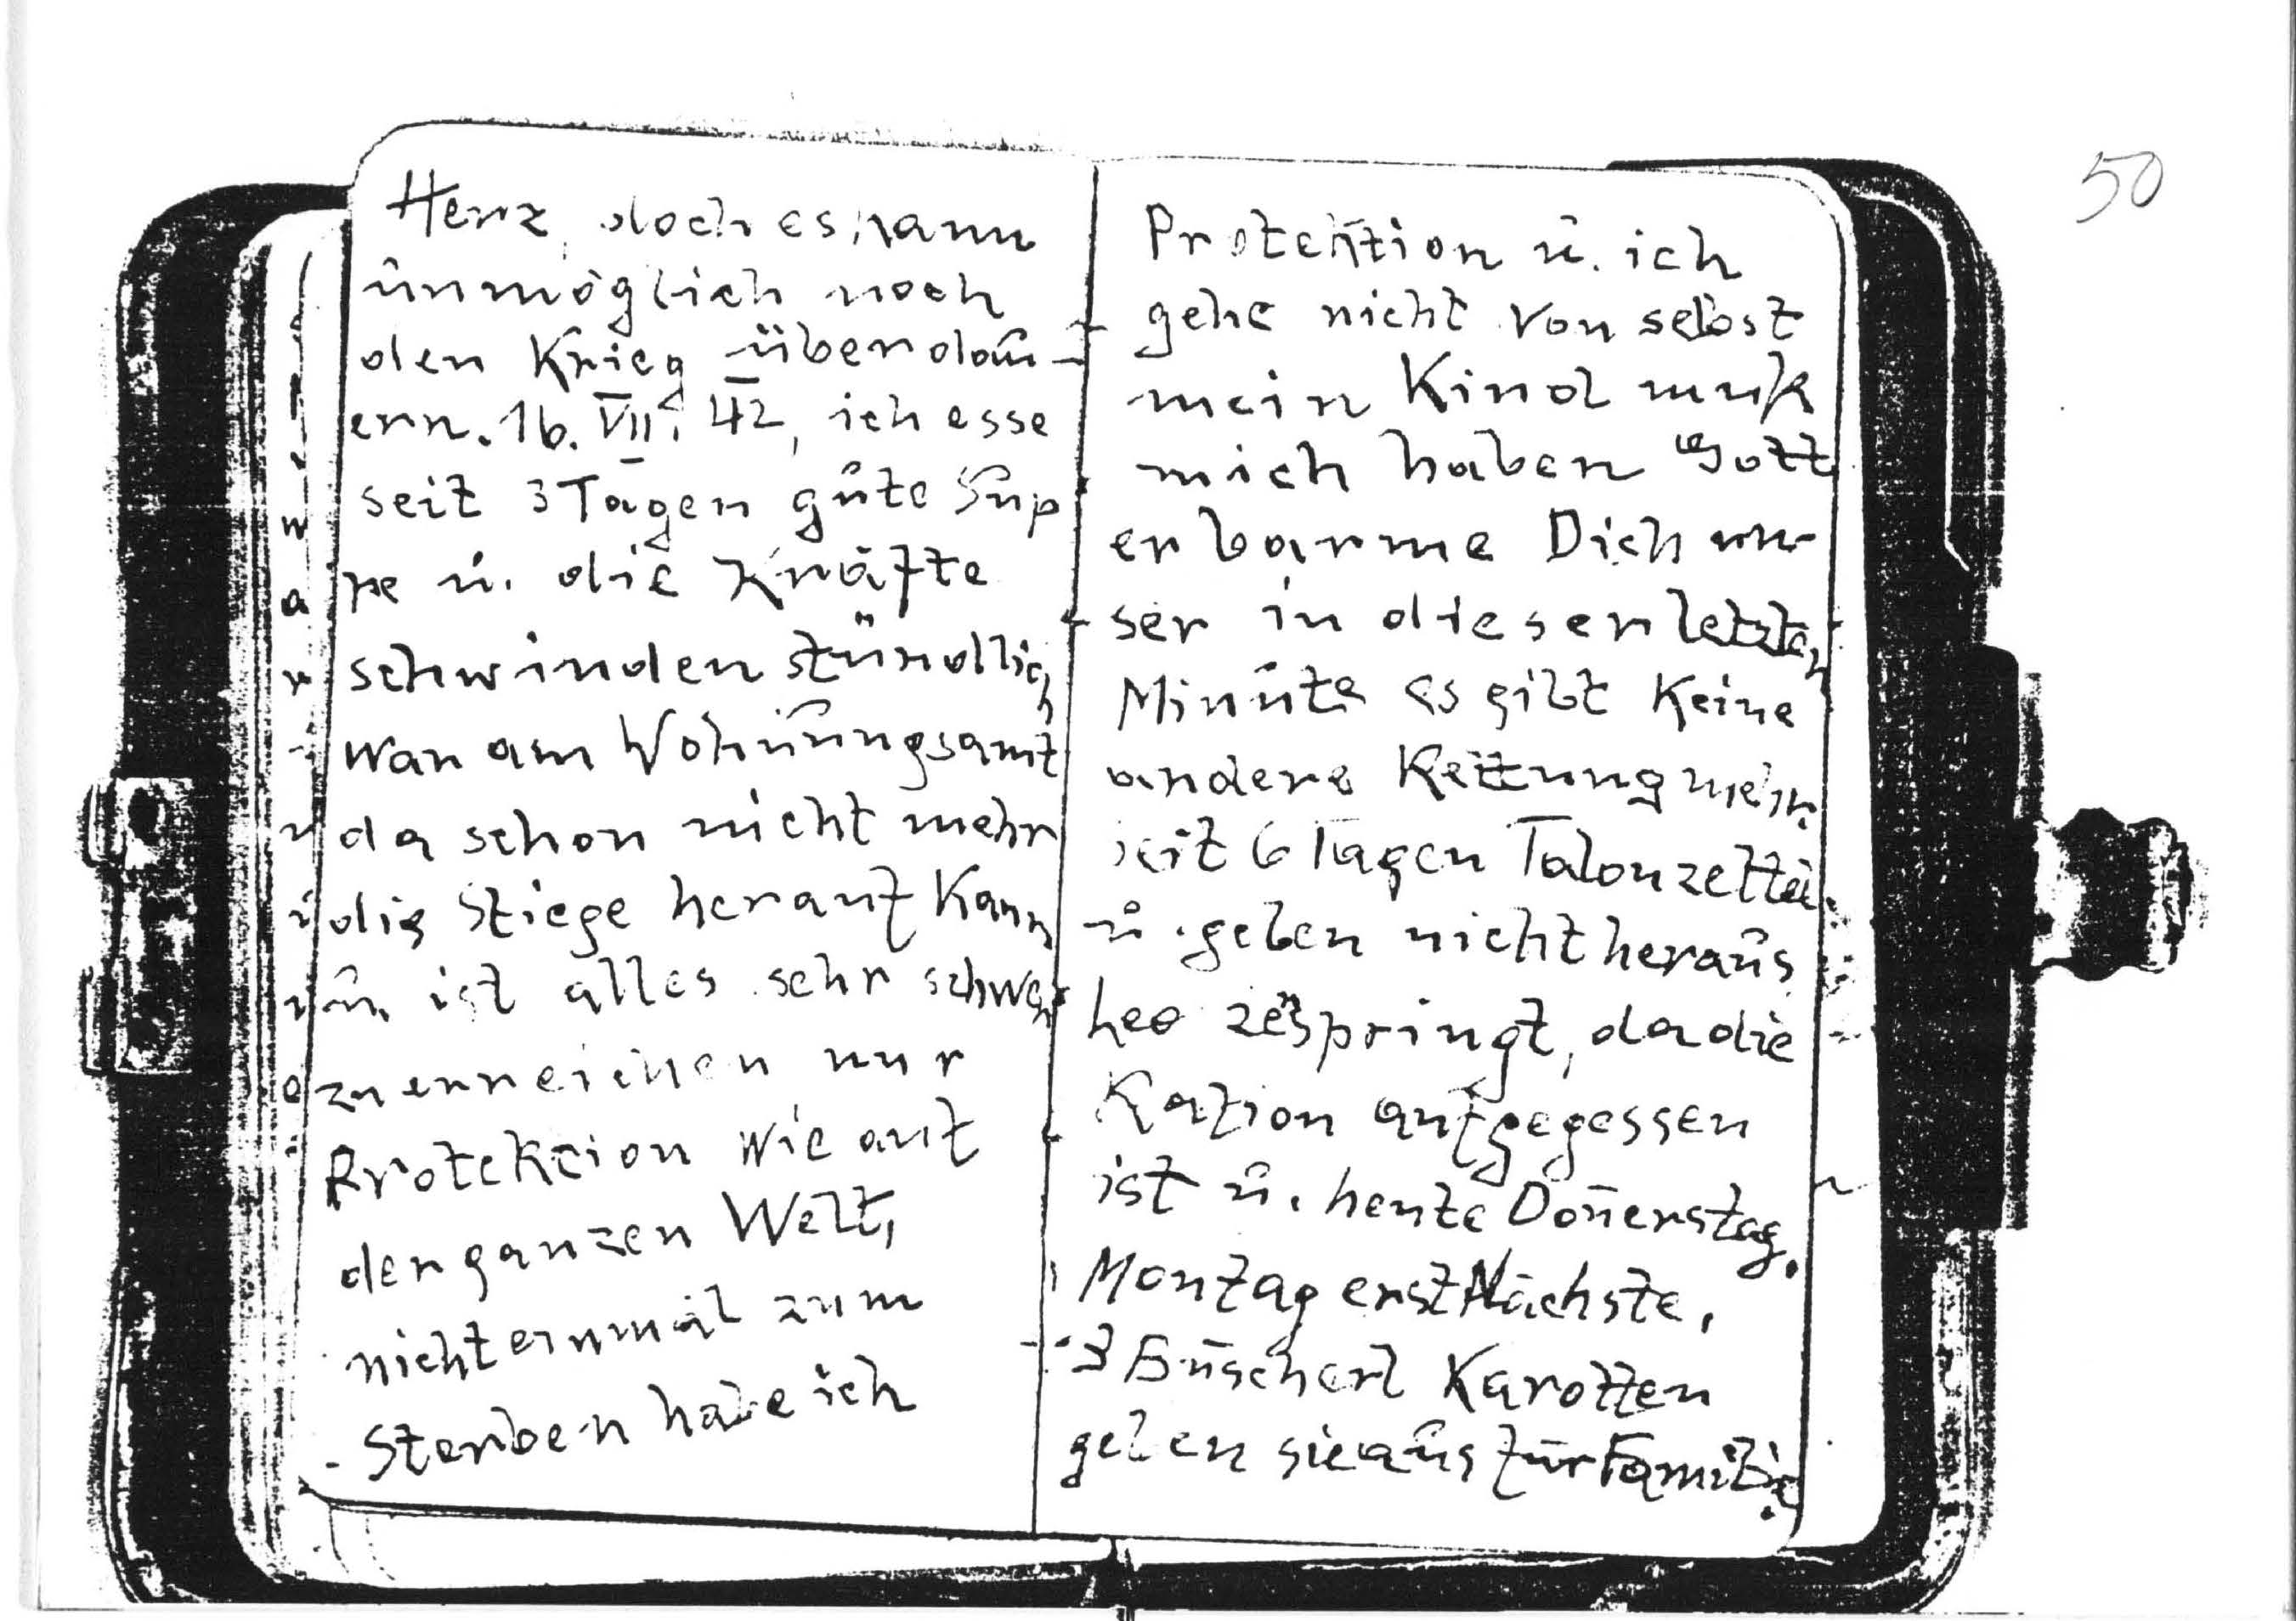 50
Herz, doch es kann
ünmöglich noch
den Krieg überdaü-
ern. 16. VII. 42, ich esse
seit 3 Tagen gûte Sûp
pe ü. die Kräfte
schwinden stündlich
war am Wohnûngsamt
da schon nicht mehr
die Stiege herauf Kann
û. ist alles sehr schwer
zu erreichen nur
Protektion wie auf
der ganzen Welt,
nicht einmal zum
Sterben habe ich
Protektion û. ich
gehe nicht von selbst
mein Kind muß
mich haben Gott
erbarme Dich un-
ser in dieser letzten
Minûte es gibt Keine
andere Rettung mehr
seit 6 Tagen Talonzettel
û. geben nicht heraûs
Leo zerspringt, da die
Razion aufgegessen
ist û. heute Don̄erstag.
Montag erst Nächste.
3 Büscherl Karotten
geben sie aûs für Familie.
w
a
r